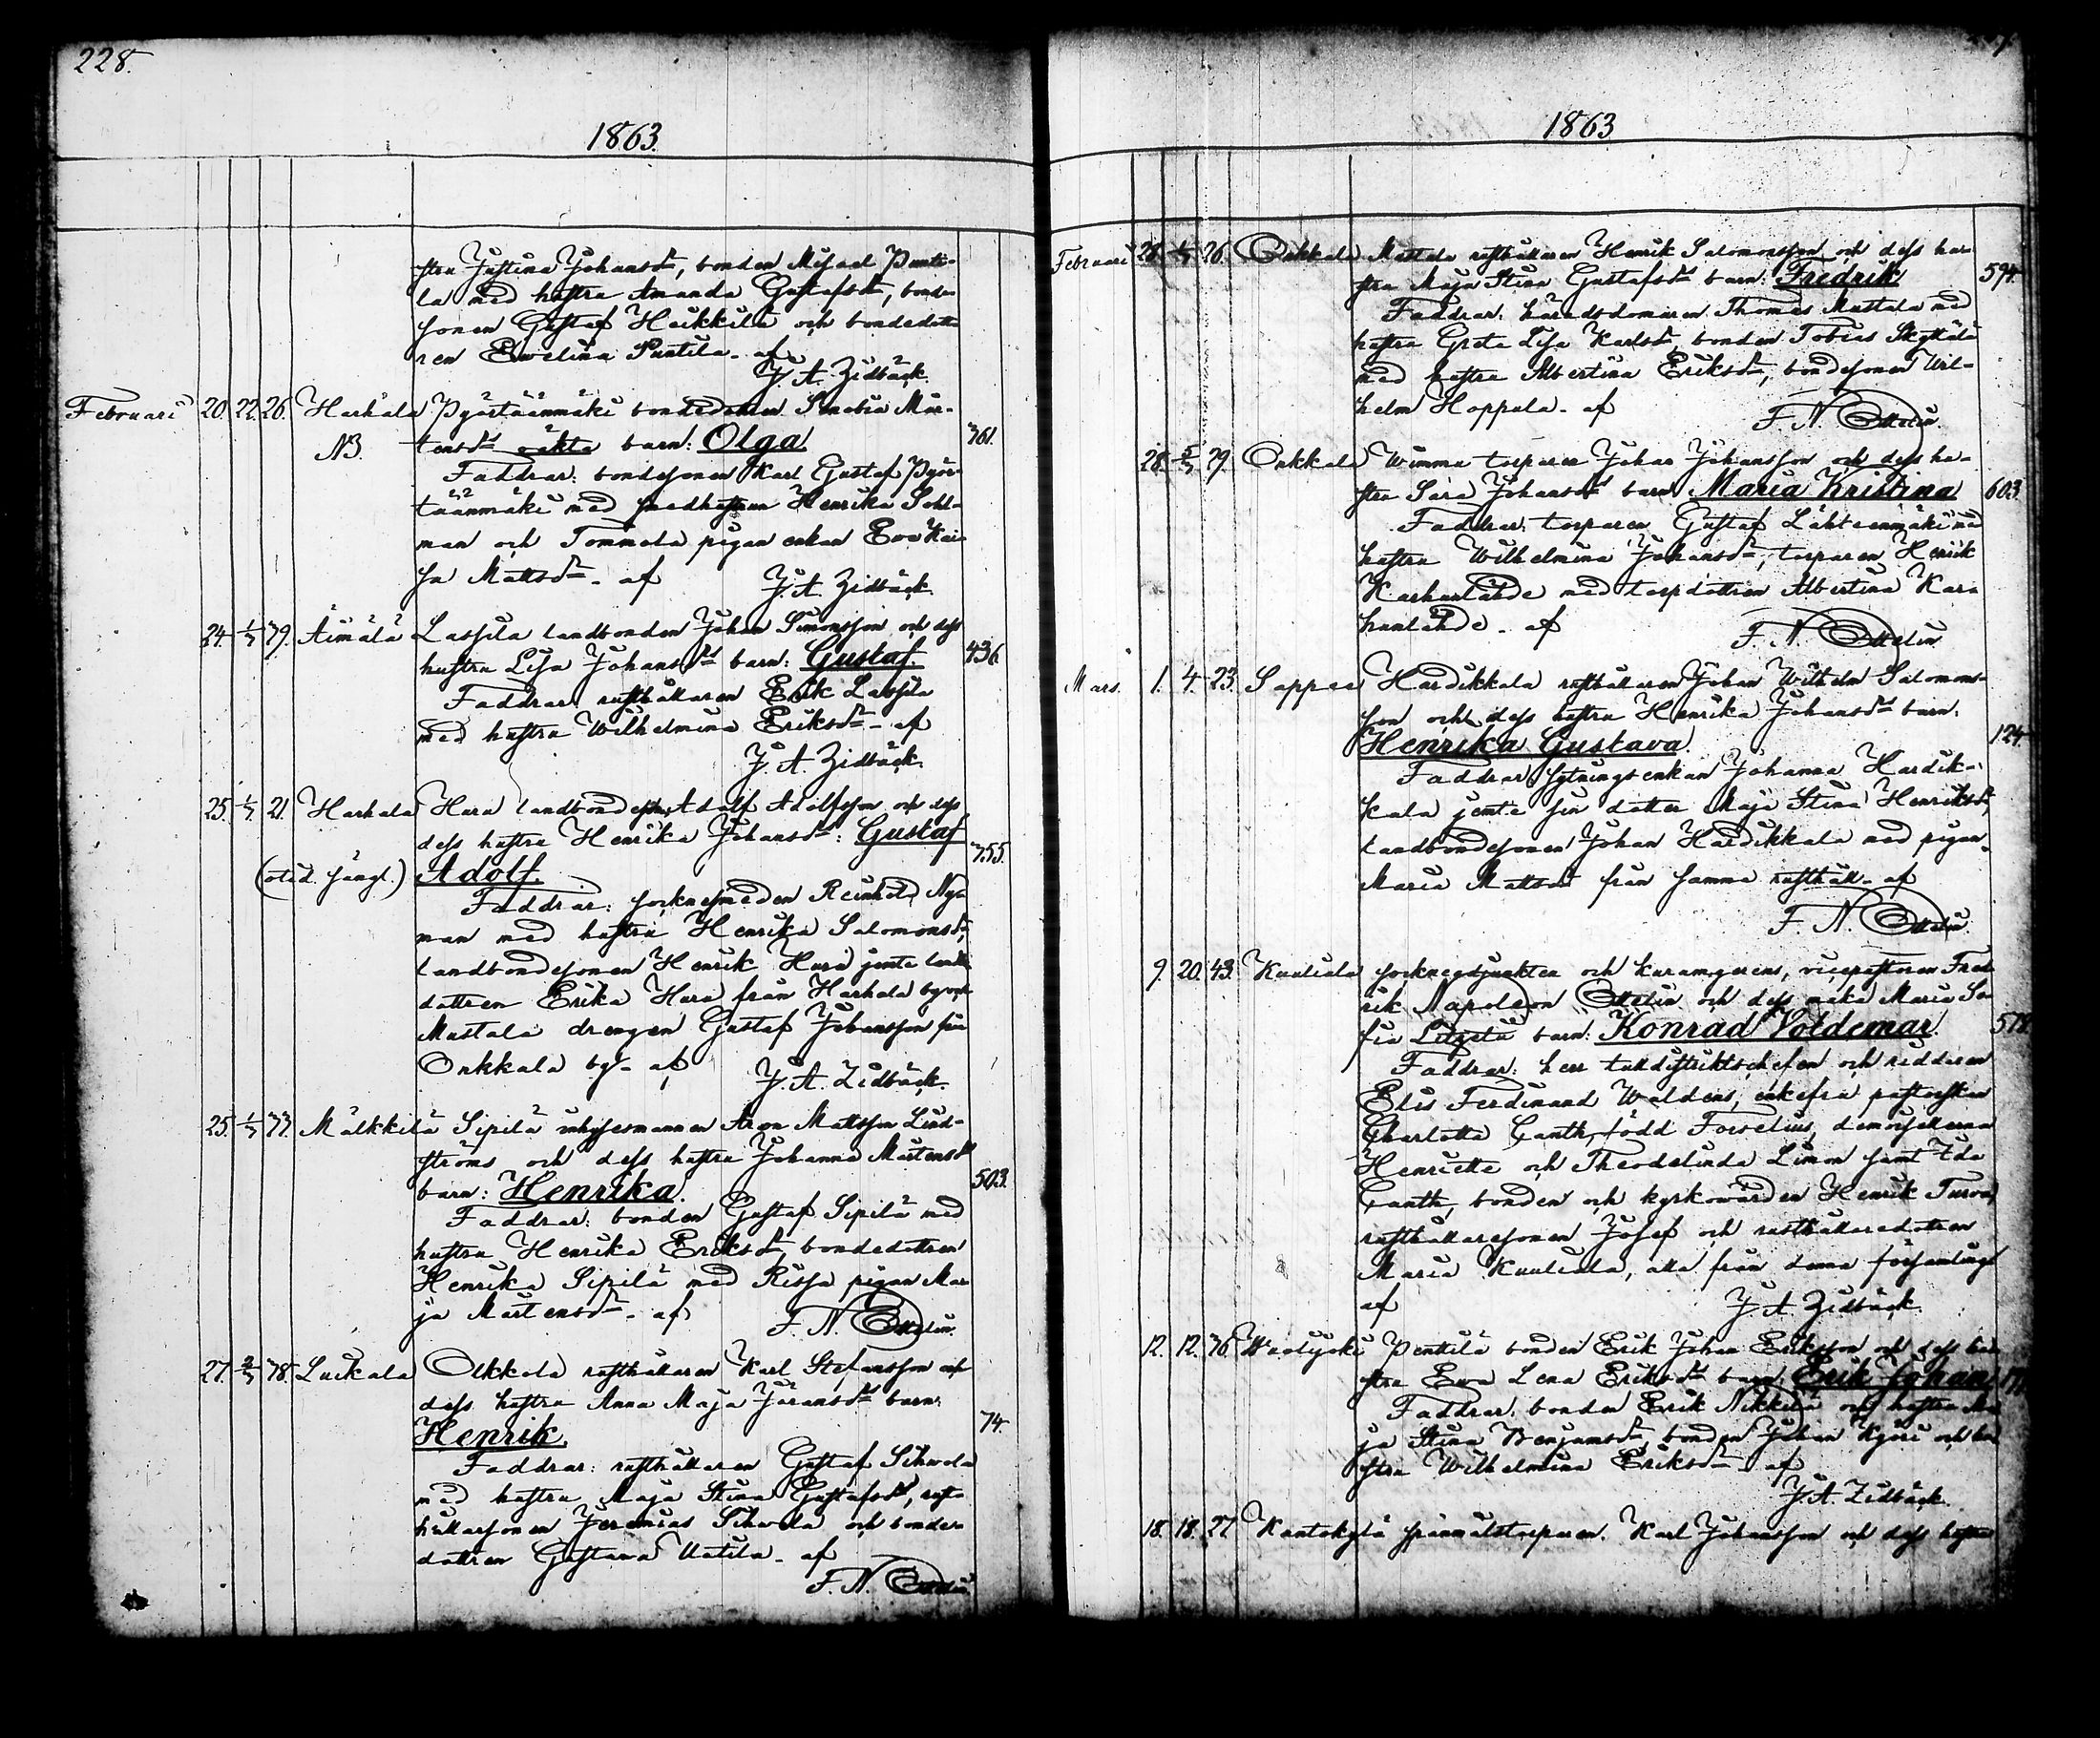 228.
1863.
stru Justina Johansdr, bonden Misael Punti-
la med hustru Amanda Gustafsdr, bonde-
sonen Gustaf Heikkilä och bondedotte
ren Ewelina Puntila. af
J. A. Zidbäck.
Februari 20. 22. 26. Harhala Pyörtäänmäki bondedottren Senobia Mår-
NB. tensdrs oäkta barn: Olga 761.
Faddrar: bondesonen Karl Gustaf Pyör-
täänmäki med smedhustrun Henrika Sohl-
man och Tommola pigan enkan Ewa Kai-
sa Mattsdr. af J. A. Zidbäck.
24. 1/3 79. Äimälä Lassila landbonden Johan Simonsson och dess
hustru Lisa Johansdrs barn: Gustaf. 436
Faddrar: rusthållaren Erik Lassila
med hustru Wilhelmina Eriksdr. af
J. A. Zidbäck.
25. 1/3 21. Harhala Hara landbondeson Adolf Adolfsson och dess
dess hustru Henrika Johansdr: Gustaf 755.
(otid. sängl.) Adolf.
Faddrar: socknesmeden Reinhold Ny-
man med hustru Henrika Salomonsdr,
landbondesonen Henrik Hara jemte landb
dottren Erika Hara från Harhala by och
Mastala drengen Gustaf Johansson från
Onkkala by. af J. A. Zidbäck.
25. 1/3 77. Mälkkilä Sipilä inhysesmannen Aron Mattsson Lind-
ströms och dess hustru Johanna Mårtensdrs
barn: Henrika. 503.
Faddrar: bonden Gustaf Sipilä med
hustru Henrika Eriksdr, bondedottren
Henrika Sipilä med Rissa pigan Ma-
ja Mårtensdr. af F. N. Ottelin.
27. 2/3 78. Luikala Olkkola rusthållaren Karl Stefansson och
dess hustru Anna Maja Göransdrs barn:
Henrik. 74.
Faddrar: rusthållaren Gustaf Sihvola
med hustru Maja Stina Gustafsdr, rust-
hållarsonen Jeremias Sihvola och bonde-
dottren Gustava Uutila. af
F. N. Ottelin.
1863
Februari 28. 26. Onkkala Mastala rusthållaren Henrik Salomonsson och dess hu-
stru Maja Stina Gustafsdrs barn: Fredrik 594.
Faddrar: häradsdomaren Thomas Mastala med
hustru Greta Lisa Karlsdr, bonden Tobias Skyttälä
med hustru Albertina Eriksdr, bondesonen Wil-
helm Hoppula. af F. N. Ottelin.
28. 5/3 29. Onkkala Wimma torparen Johan Johansson och dess hu-
stru Sara Johansdrs barn Maria Kristina 603.
Faddrar: torparen Gustaf Lähteenmäki med
hustru Wilhelmina Johansdr, torparen Henrik
Karhunlähde med torpdottren Albertina Kar-
hunlähde. af F. N. Ottelin.
Mars. 1. 4. 23. Sappee Hardikkala rusthållaren Johan Wilhelm Salomons-
son och dess hustru Henrika Johansdrs barn:
Henrika Gustava. 124.
Faddrar: sytningsenkan Johanna Hardik-
kala jemte sin dotter Maja Stina Henriksdr,
landbondesonen Johan Hardikkala med pigan
Maria Mattsdr från samma rusthåll. af
F. N. Ottelin.
9. 20. 43. Kuuliala sockneadjunkten och kuramgerens, vicepastoren Fred-
rik Napoleon Ottelin och dess maka Maria So-
fia Litzelii barn: Konrad Voldemar. 578.
Faddrar: herr tulldistriktschefen och riddaren
Elis Ferdinand Waldens, enkefru pastorskan
Charlotta Canth, född Forselius, demoisellerna
Henriette och Theodelinda Limon samt Ida
Canth, bonden och kyrkovärden Henrik Turva,
rusthållaresonen Josef och rusthållaredottren
Maria Kuuliala, alla från denna församling
af J. A. Zidbäck.
12. 12. 36. Wäälyski Penttilä bonden Erik Johan Eriksson och dess hu-
stru Ewa Lena Eriksdrs barn: Erik Johan
Faddrar: bonden Erik Nikkilä och hustru Ma-
ja Stina Benjamsdr, bonden Johan Kyöri och hu-
stru Wilhelmina Eriksdr. af
J. A. Zidbäck.
18. 18. 27. Kantokylä spånmålstorparen Karl Johansson och dess hustru